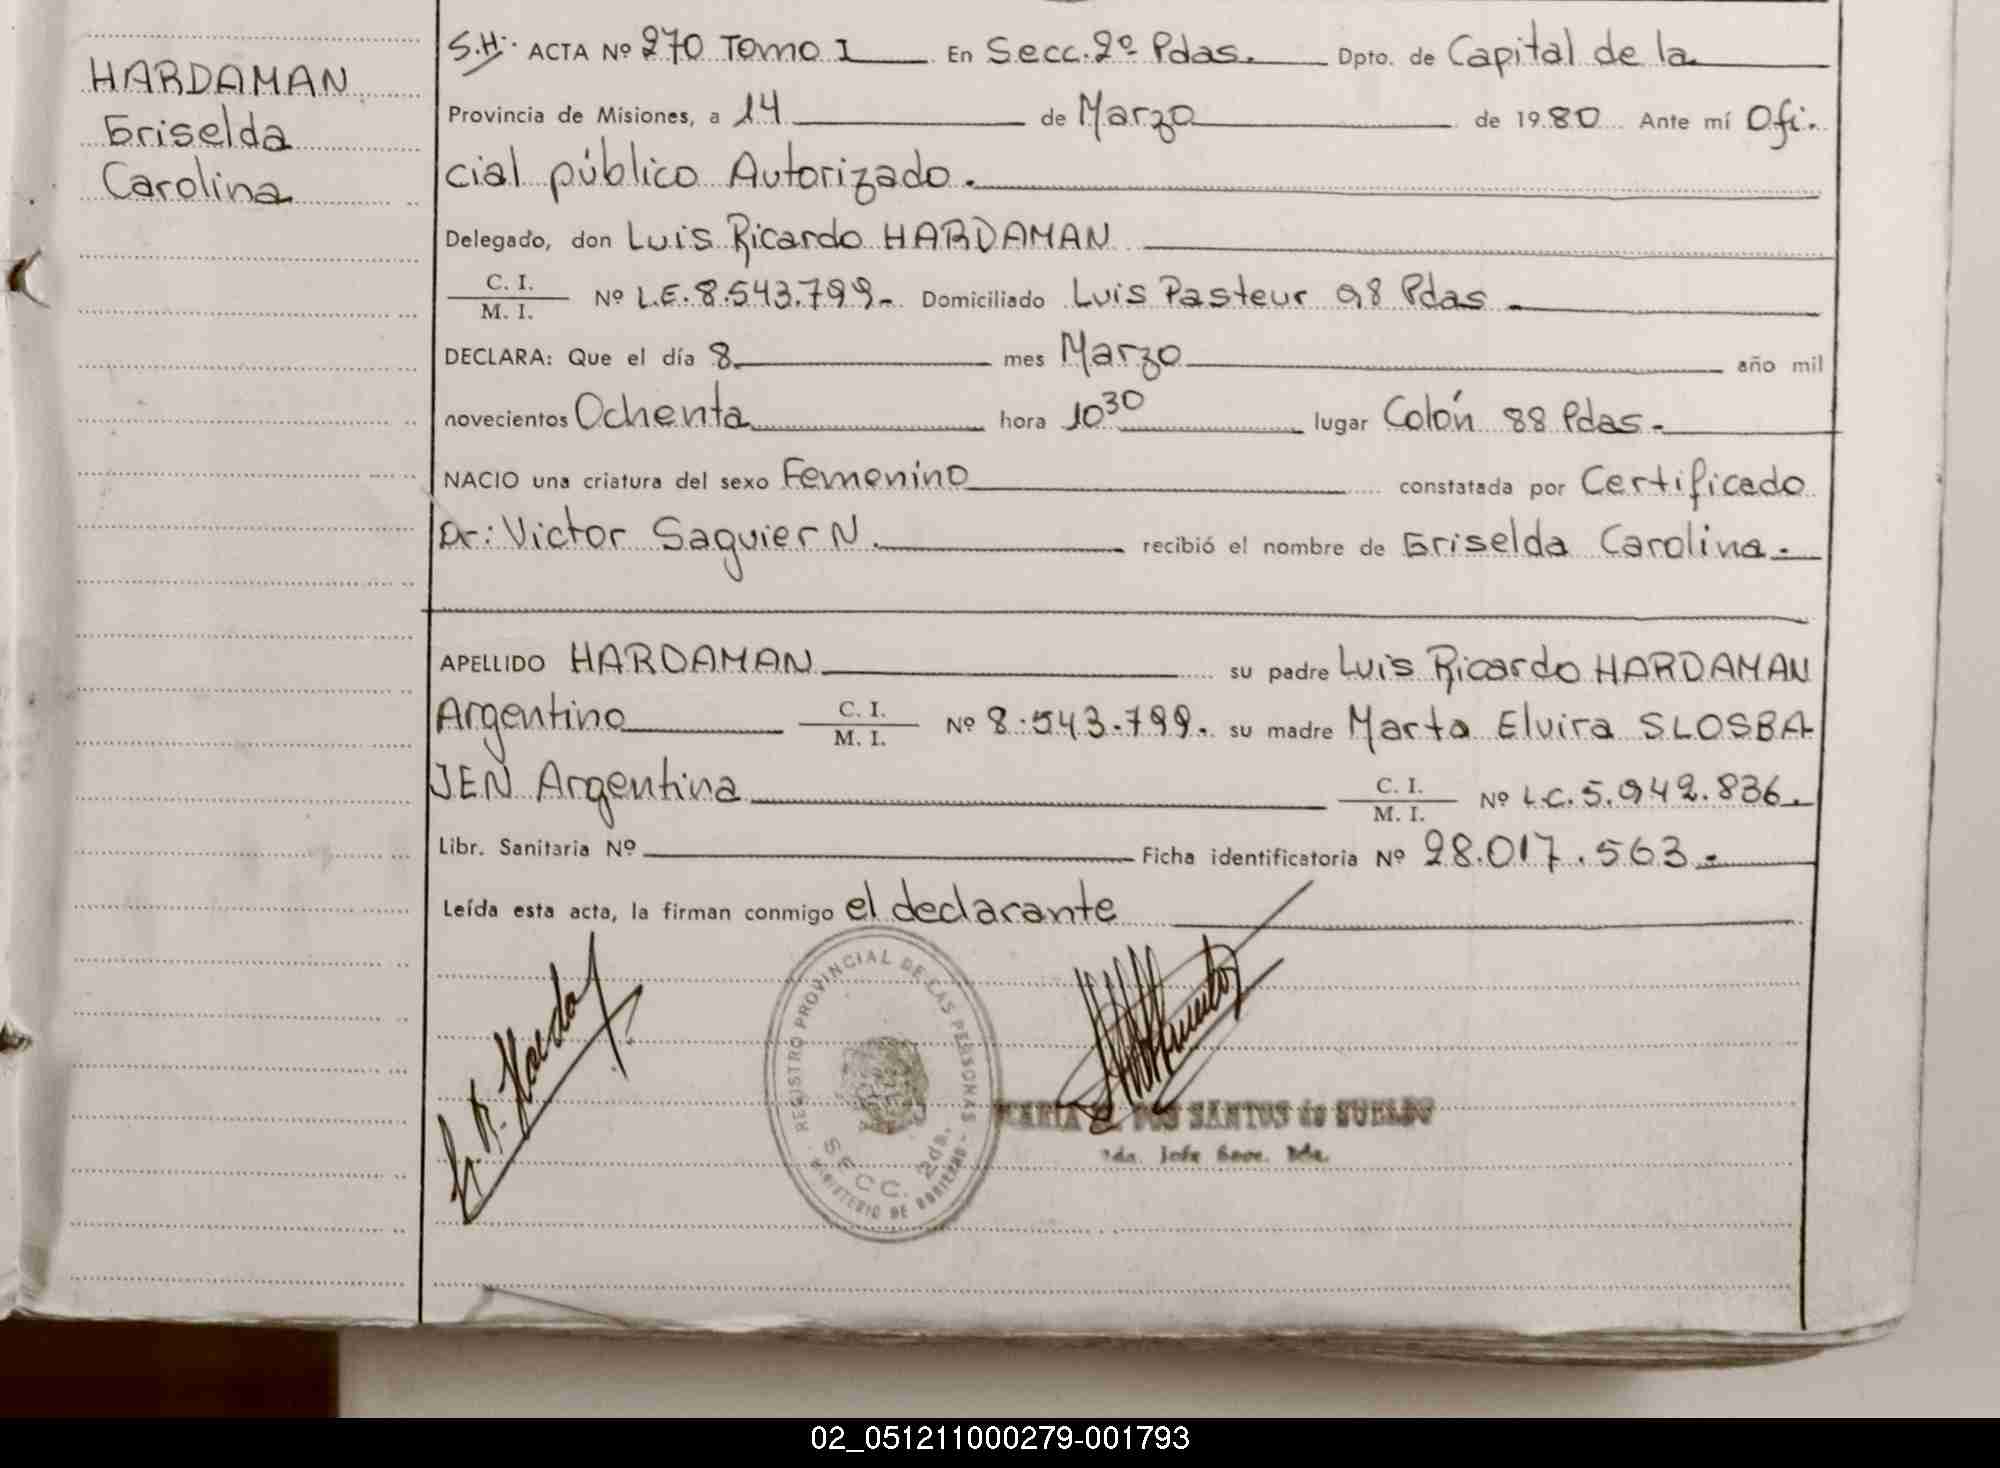 HARDAMAN
Griselda
Carolina
S.H: ACTA Nº 270 Tomo I En Secc. 2º Pdas. Dpto. de Capital de la
Provincia de Misiones, a 14 de Marzo de 1980 Ante mí Ofi.
cial público Autorizado.
Delegado, don Luis Ricardo HARDAMAN
C. I.
M. I. Nº L.E. 8.543.799.- Domiciliado Luis Pasteur 98 Pdas
DECLARA: Que el día 8 mes Marzo año mil
novecientos Ochenta hora 10 30 lugar Colón 88 Pdas.-
NACIO una criatura del sexo Femenino constatada por Certificado
Dr: Victor Saguier N. recibió el nombre de Griselda Carolina.-
APELLIDO HARDAMAN su padre Luis Ricardo HARDAMAN
Argentino C. I.
M. I. Nº 8.543.799. su madre Marta Elvira SLOSBA
JEN Argentina C. I.
M. I. Nº L.C. 5.942.836.
Libr. Sanitaria Nº Ficha identificatoria Nº 28.017.563.-
Leída esta acta, la firman conmigo el declarante
REGISTRO PROVINCIAL DE LAS PERSONAS
SECC. 2da.
MINISTERIO DE GOBIERNO
MARIA DOS SANTOS de
02_051211000279-001793